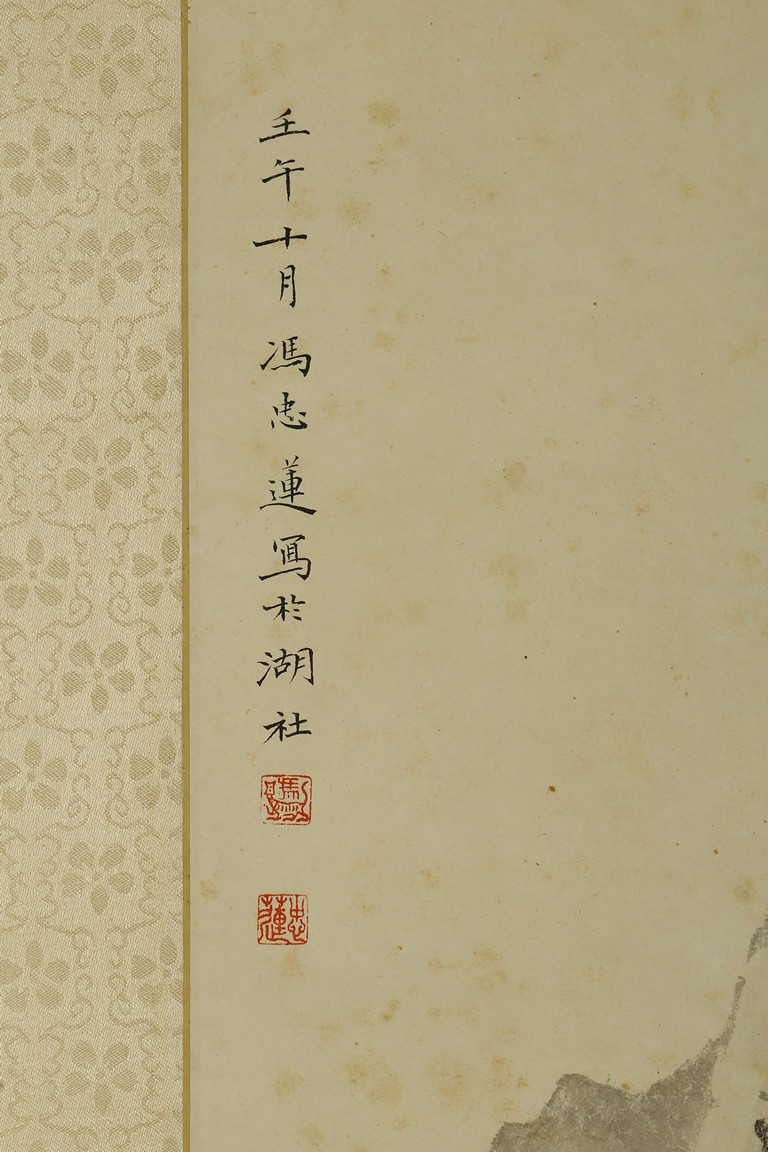 壬午十月馮忠蓮寫於湖社
忠蓮